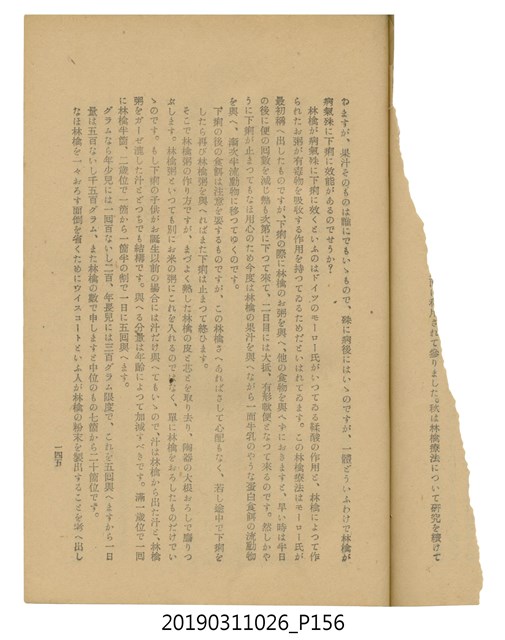 れますが、果汁そのものは誰にでもいゝもので、殊に病後にはいゝのですが、一體どういふわけで林檎が
病氣殊に下痢に效能があるのでせうか？
林檎が病氣殊に下痢に效くといふのはドイツのモーロー氏がいつてゐる鞣酸の作用と、林檎によつて作
られたお粥が有毒物を吸收する作用を持つてゐるためだといはれてゐます。この林檎療法はモーロー氏が
最初編へ出したものですが、下痢の際に林檎のお粥を與へ、他の食物を與へずにおきますと、早い時は半日
の後に便の回數を減じ熱も次第に下つて來て、二日目には大抵、有形軟便となつて來るのです。然しかや
うに下痢が止まつてもなほ用心のため今度は林檎の果汁を與へながら一面牛乳のやうな蛋白食餌の流動物
を與へ、漸次半流動物に移つてゆくのです。
下痢の後の食餌は注意を要するものですが、この林檎さへあればさして心配もなく、若し途中で下痢を
したら再び林檎粥を與へればまた下痢は止まつて終ひます。
そこで林檎粥の作り方ですが、まづよく熟した林檎の皮と芯とを取り去り、陶器の大根おろしで磨りつ
ぶします。林檎粥といつても別にお米の粥にこれを入れるのでなく、單に林檎をおろしたものだけでい
ゝのです。もし下痢の子供がお誕生以前の場合には汁だけ與へてもいゝので、汁は林檎から出た汁と、林檎
粥をガーゼで漉した汁とどつちでも結構です。與へる分量は年齡によつて加減すべきです。滿一歳位で一回
に林檎半個、二歳位で一個から一個半の割で一日に五回與へます。
グラムなら年少兒には一回百ないし二百、年長兒には三百グラム限度で、これを五回與へますから一日
量は五百ないし千五百グラム、また林檎の數で申しますと中位のもの七個から二十個位です。
なほ林檎を一々おろす面倒を省くためにウイスコートといふ人が林檎の粉末を製出することを考へ出し
一四五
されて參りました。秋は林檎療法について研究を續けて
20190311026_P156